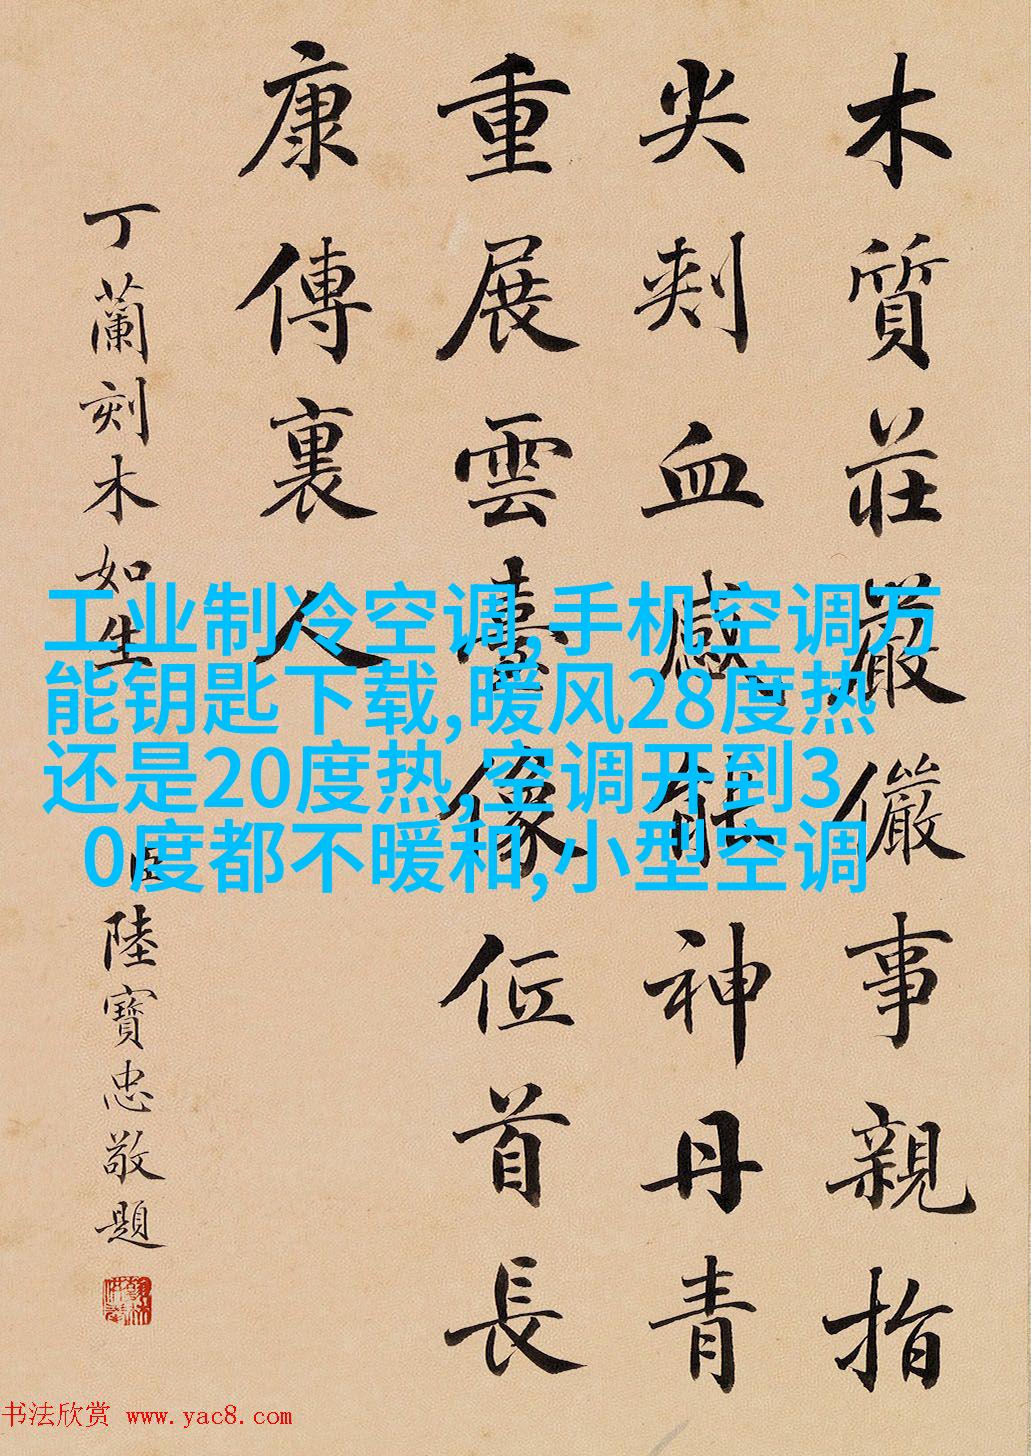 木質莊嚴儼事親指
尖刾血感能神丹青
重展雲臺像仾首長
康傳裏人
丁蘭刻木如生
臣陸寶忠敬題
工业制冷空调,手机空调万
能钥匙下载,暖风28度热
还是20度热,空调开到3
0度都不暖和,小型空调
书法欣赏 www.yac8.com